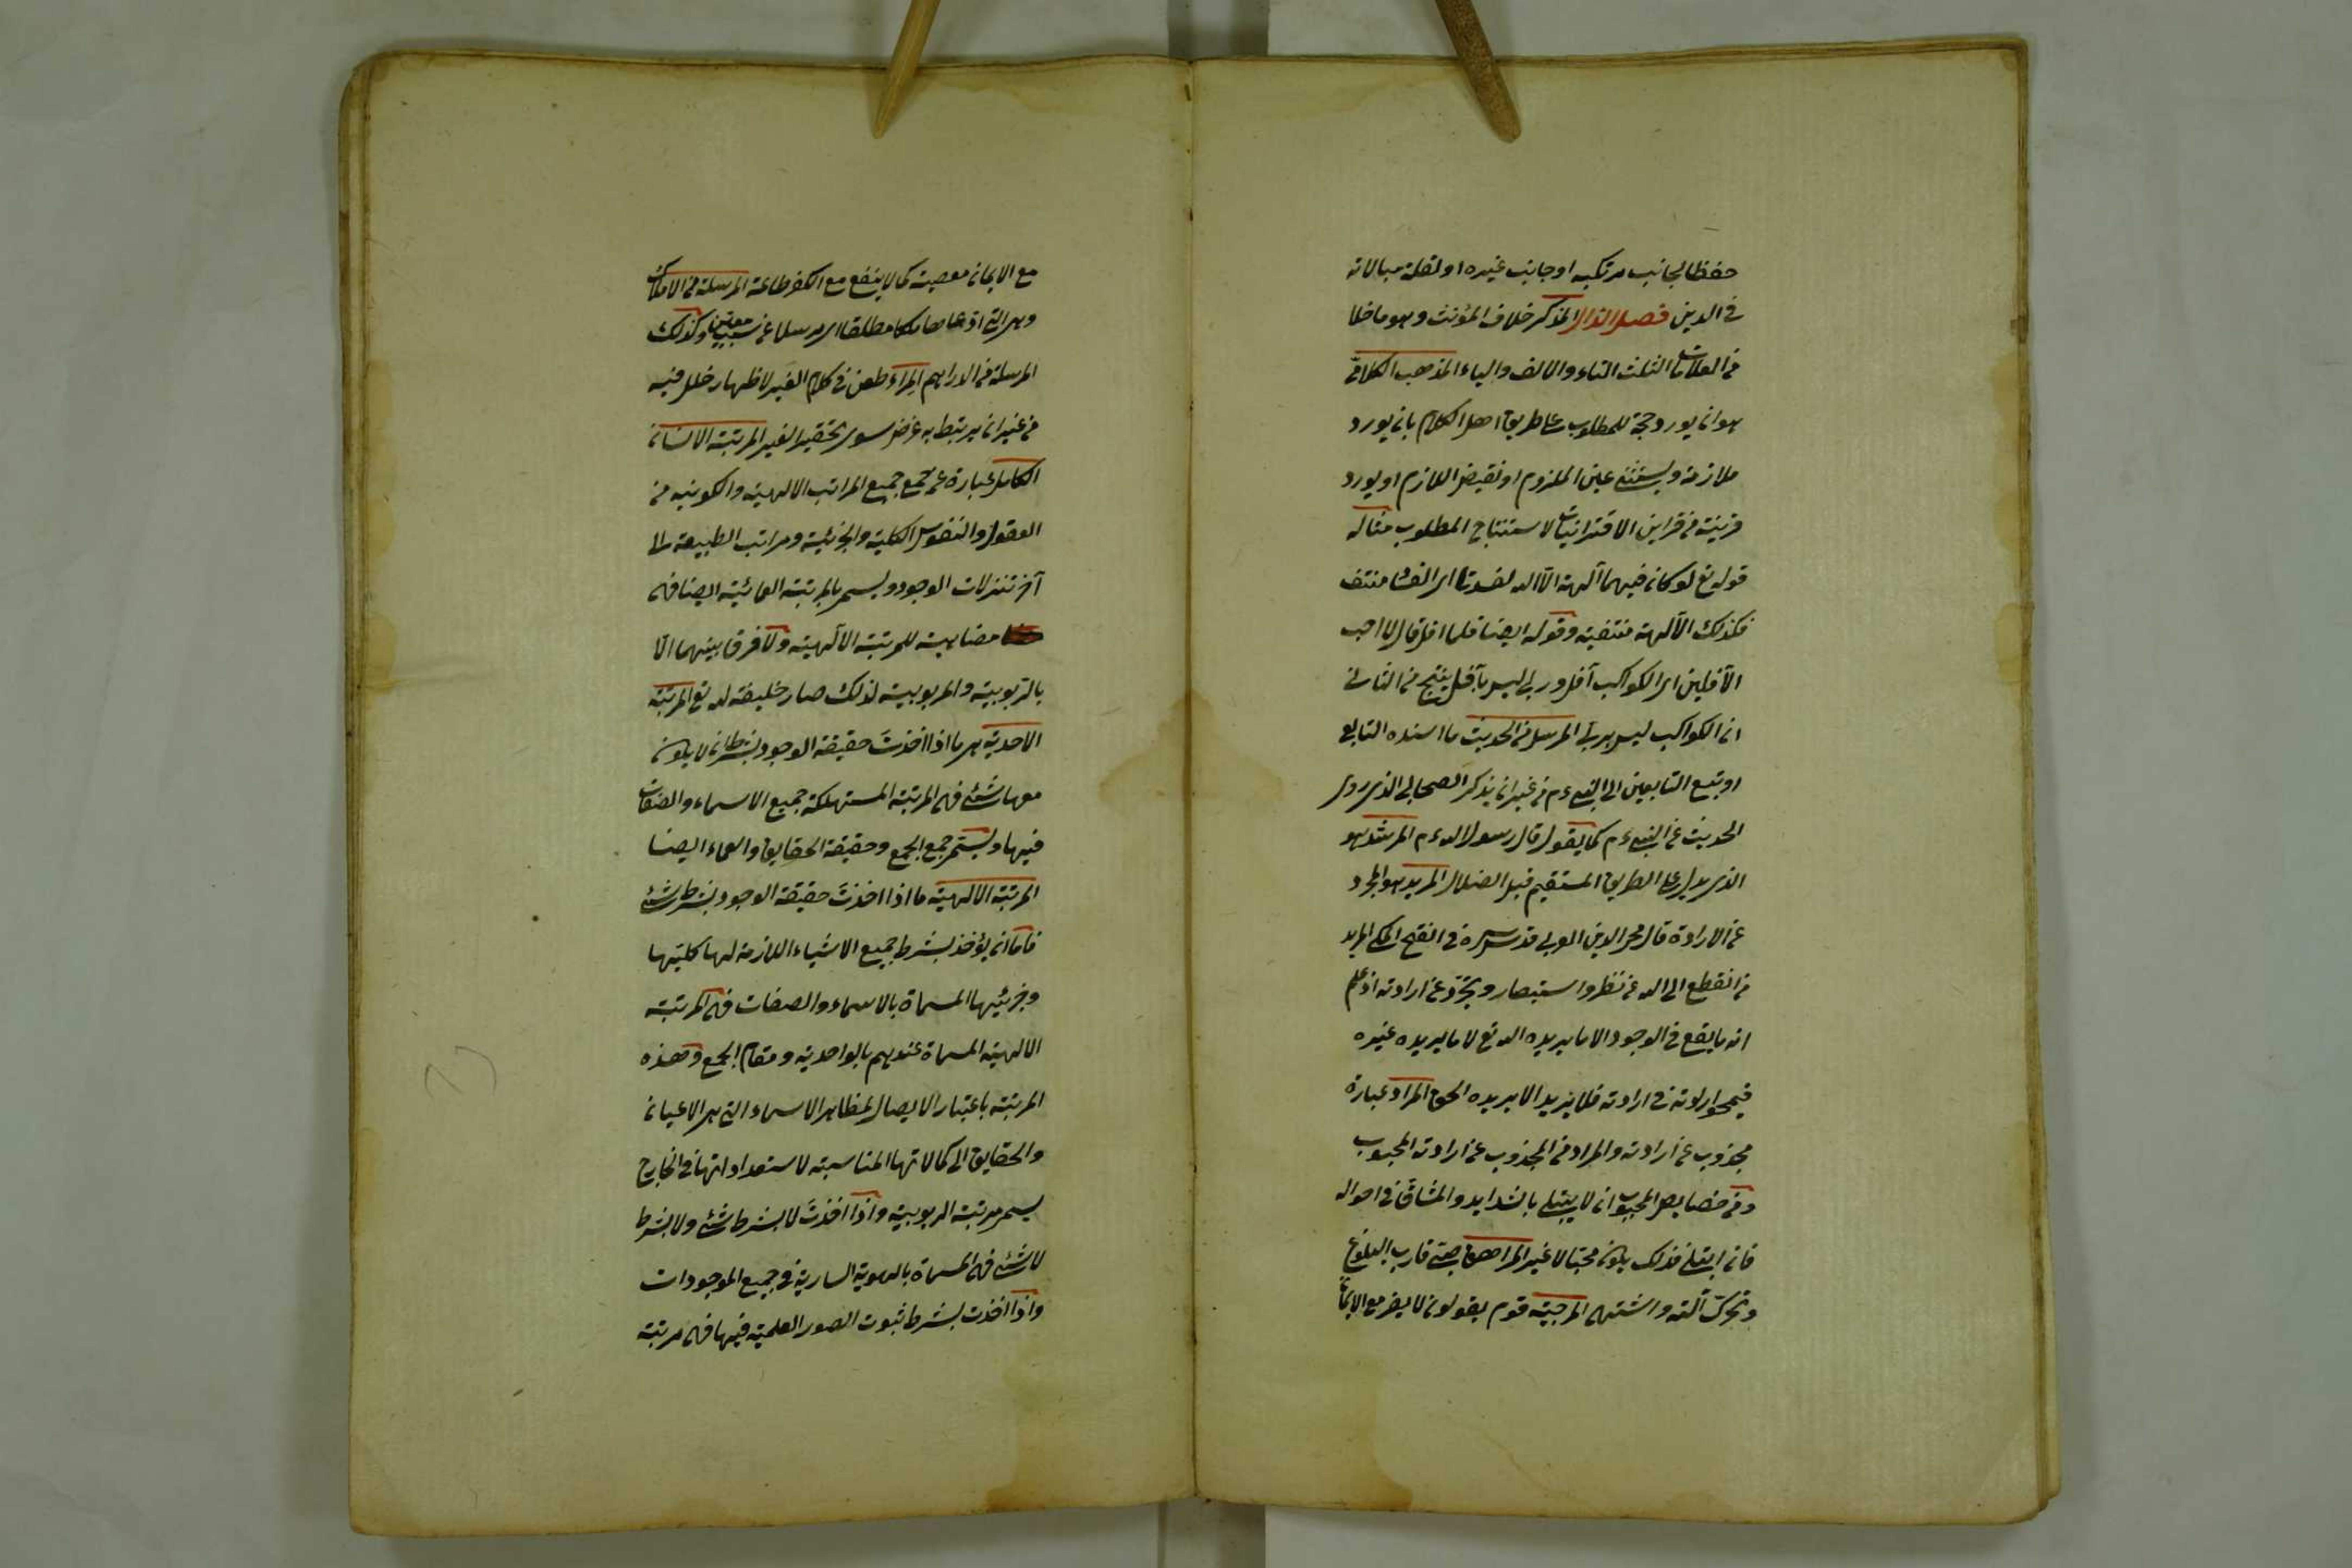 حفظا لجانب مرتكبه او جانب غيره او لقلة مبالاته
في الدين فصل الذال المذكر خلاف المؤنث وهو ما خلا
من العلامات الثلث التاء والالف والياء المذهب الكلامي
هو ان يورد حجة للمطلوب على طريق اهل الكلام بان يورد
ملازمة ويستثنى عين الملزوم او نقيض اللازم او يورد
قرينة من قراين الاقترانيات لاستنتاج المطلوب مثاله
قوله تع لو كان فيهما آلهة الا الله لفسدتا اى الفساد منتف
فكذلك الآلهة منتفية وقوله ايضا فلما افل قال لا احب
الآفلين اى الكواكب آفل وربى ليس بآفل ينتج من الثانى
ان الكواكب ليس بربى المرسل من الحديث ما اسنده التابعى
او تبع التابعين الى النبى ءم من غير ان يذكر الصحابى الذى روى
الحديث عن النبى ءم كما يقول قال رسول الله ءم المرشد هو
الذى يدل على الطريق المستقيم قبل الضلال المريد هو المجرد
عن الارادة قال محى الدين العربى قدس سره فى الفتح المكى المريد
من انقطع الى الله عن نظر واستبصار وتجرد عن ارادته اذ علم
انه ما يقع فى الوجود الا ما يريده الله تع لا ما يريده غيره
فيمحو ارادته فى ارادته فلا يريد الا ما يريده الحق المراد عبارة
مجذوب عن ارادته والمراد من المجذوب عن ارادته المحبوب
ومن خصايص المحبوب ان لا يبتلى بالشدايد والمشاق فى احواله
فان ابتلى فذلك يكون محبا لا غير المراهق صبى قارب البلوغ
وتحرك آلته واشتهى المرجية قوم يقولون لا يضر مع الايمان
مع الايمان معصية كما لا ينفع مع الكفر طاعة المرسلة من الاملاك
وهى التى ادعاها ملكا مطلقا اى مرسلا عن سبب معين وكذلك
المرسلة من الدراهم المراء طعن فى كلام الغير لاظهار خلل فيه
من غير ان يرتبط به غرض سوى تحقير الغير المرتبة الانسان
الكامل عبارة عن جمع جميع المراتب الالهية والكونية من
العقول والنفوس الكلية والجزئية ومراتب الطبيعة الى
آخر تنزلات الوجود ويسمى بالمرتبة العمائية ايضا فهى
مضاهية للمرتبة الالهية ولا فرق بينهما الا
بالربوبية والمربوبية لذلك صار خليفة لله تع المرتبة
الاحدية هى ما اذا اخذت حقيقة الوجود بشرط ان لا يكون
معها شئ فهى المرتبة المستهلكة جميع الاسماء والصفات
فيها ويسمى جمع الجمع وحقيقة الحقايق والعماء ايضا
المرتبة الالهية ما اذا اخذت حقيقة الوجود بشرط شئ
فاما ان يؤخذ بشرط جميع الاشياء اللازمة لها كليتها
وجزئيتها المسماة بالاسماء والصفات فهى المرتبة
الالهية المسماة عندهم بالواحدية ومقام الجمع وهذه
المرتبة باعتبار الايصال لمظاهر الاسماء التى هى الاعيان
والحقايق الى كمالاتها المناسبة لاستعداداتها فى الخارج
يسمى مرتبة الربوبية واذا اخذت لا بشرط شئ ولا بشرط
لا شئ فهى المسماة بالهوية السارية فى جميع الموجودات
واذا اخذت بشرط ثبوت الصور العلمية فيها فهى مرتبة